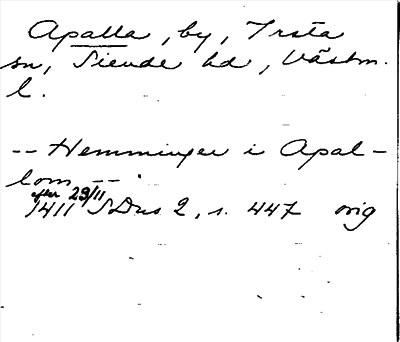 Apalla, by, Irsta
sn, Siende hd, Västm.
l.
-- Hemminger i Apal-
lom --.
efter 29/11
1411 SDns 2, s. 447 orig